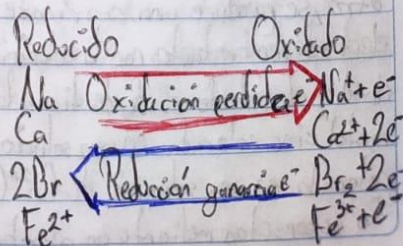 Reducido Oxidado
Na Oxidación perdida e⁻ Na⁺ + e⁻
Ca Ca²⁺ + 2e⁻
2Br Reducción ganancia e⁻ Br₂ + 2e⁻
Fe²⁺ Fe³⁺ + e⁻